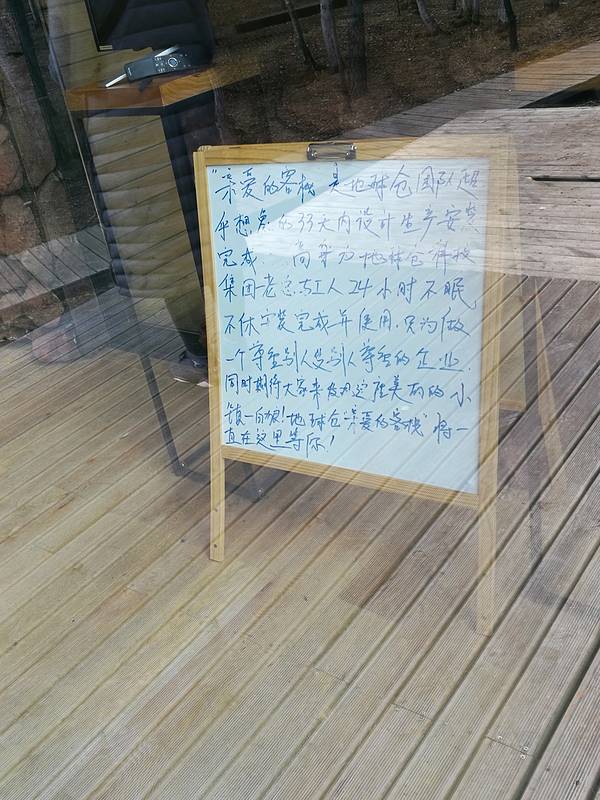 "亲爱的客栈"是地球仓团队超
乎想象的33天内设计生产安装
完成 地球仓科技
集团老总与工人24小时不眠
不休安装完成并使用.只为做
一个尊重别人受别人尊重的企业.
同时期待大家来发现这座美丽的小
镇—白狼!地球仓"亲爱的客栈"将一
直在这里等你!